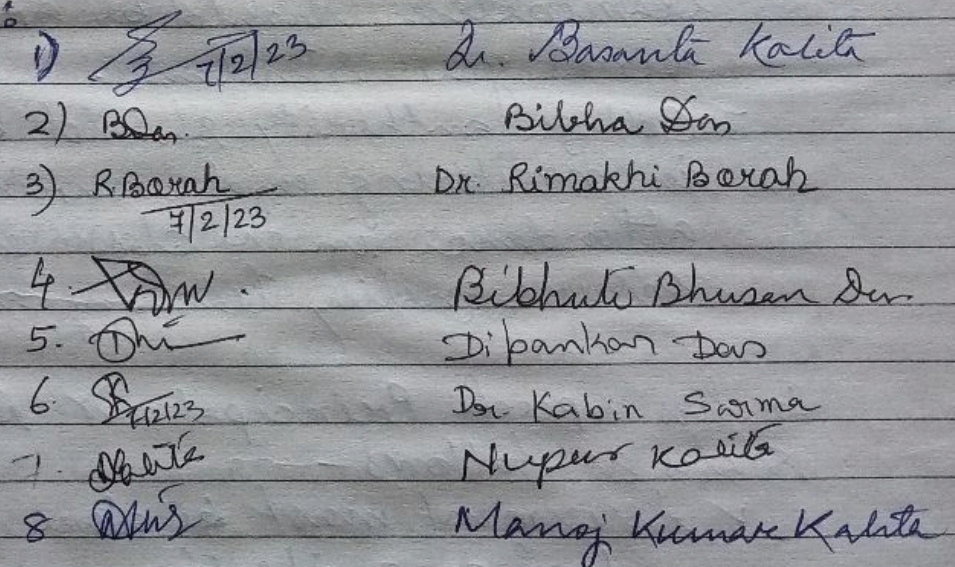 1) 7/2/23 Dr. Basanta Kalita
2) BDas. Bibha Das
3) R Borah Dr. Rimakhi Borah
7/2/23
4. Bibhuti Bhusan Das
5. Dipankar Das
6. 7/2/23 Dr. Kabin Sarma
7. Nupur Kalita
8 Manoj Kumar Kalita